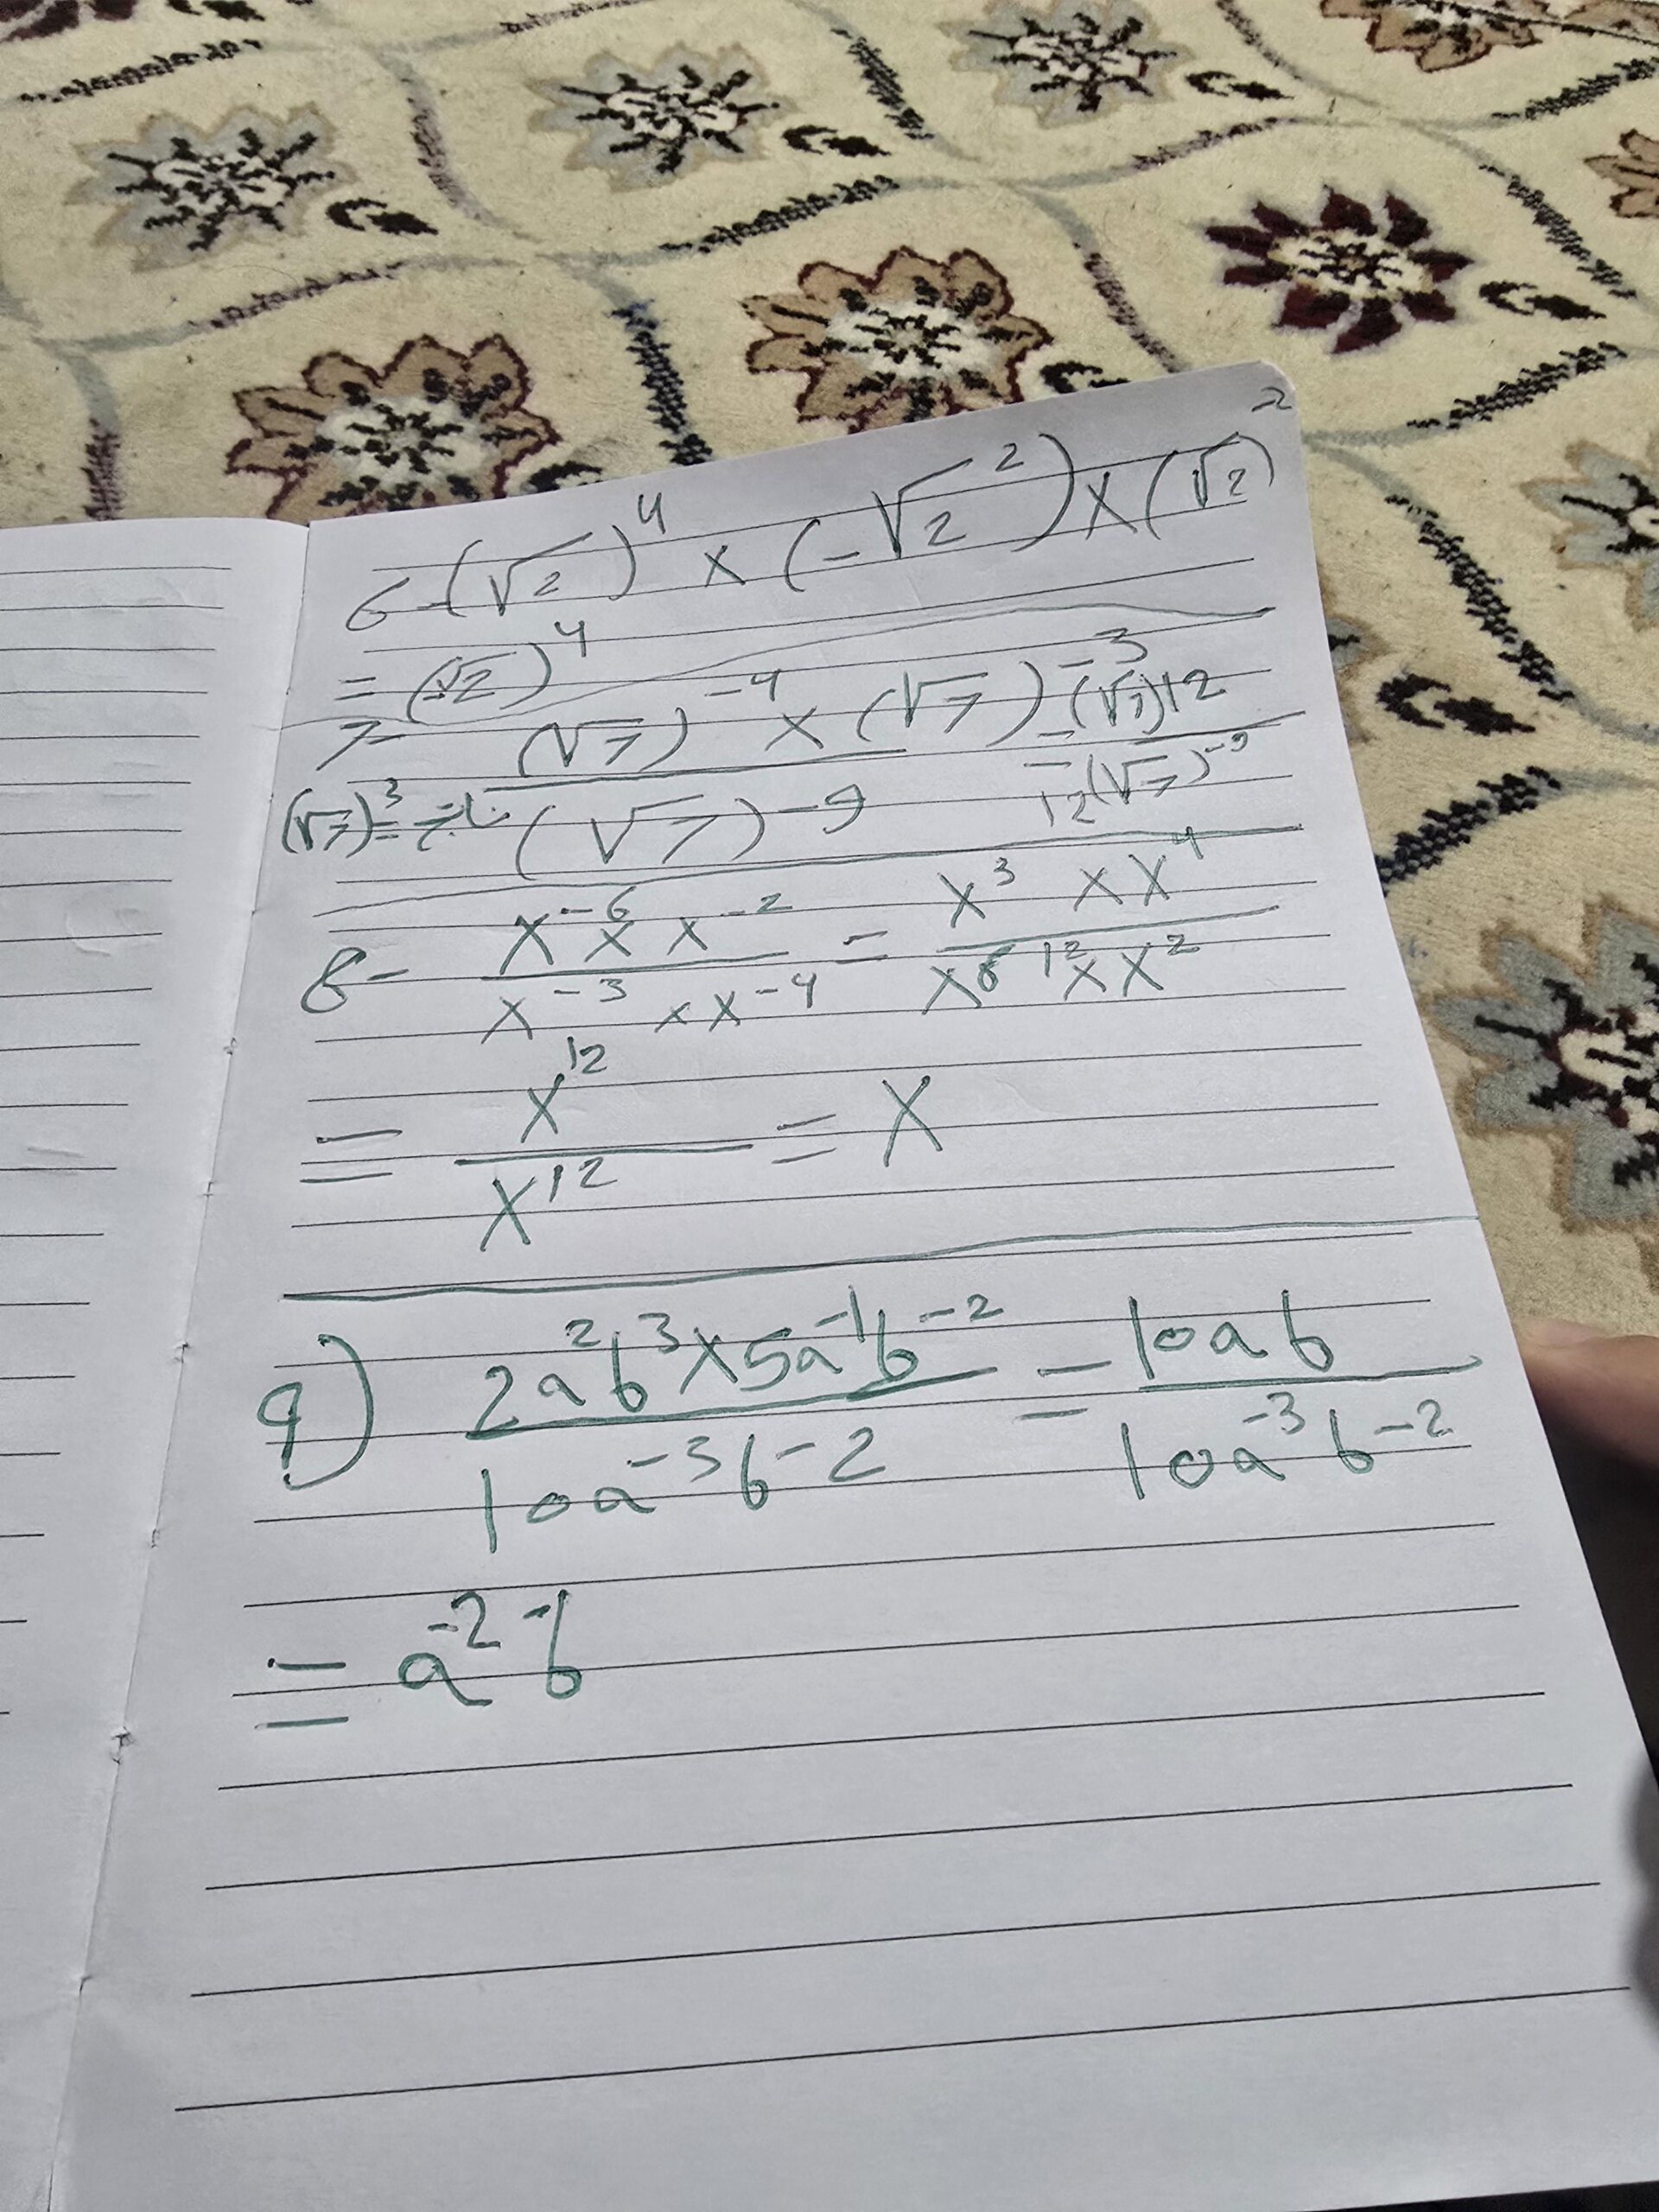 6- (√2)⁴ × (-√2²) × (√2)⁻²
= (√2)⁴
7- (√7)⁻⁴ × (√7)⁻³ / (√7)⁻⁹ = (√7)12 / 12(√7)⁻⁹
(√7)³ =
8- x⁻⁶ × x⁻² / x⁻³ × x⁻⁴ = x³ × x⁴ / x⁶ 12 × x²
= x¹² / x¹² = x
9) 2a²b³ × 5a⁻¹b⁻² / 10a⁻³b⁻² = 10ab / 10a⁻³b⁻²
= a⁻² b⁻